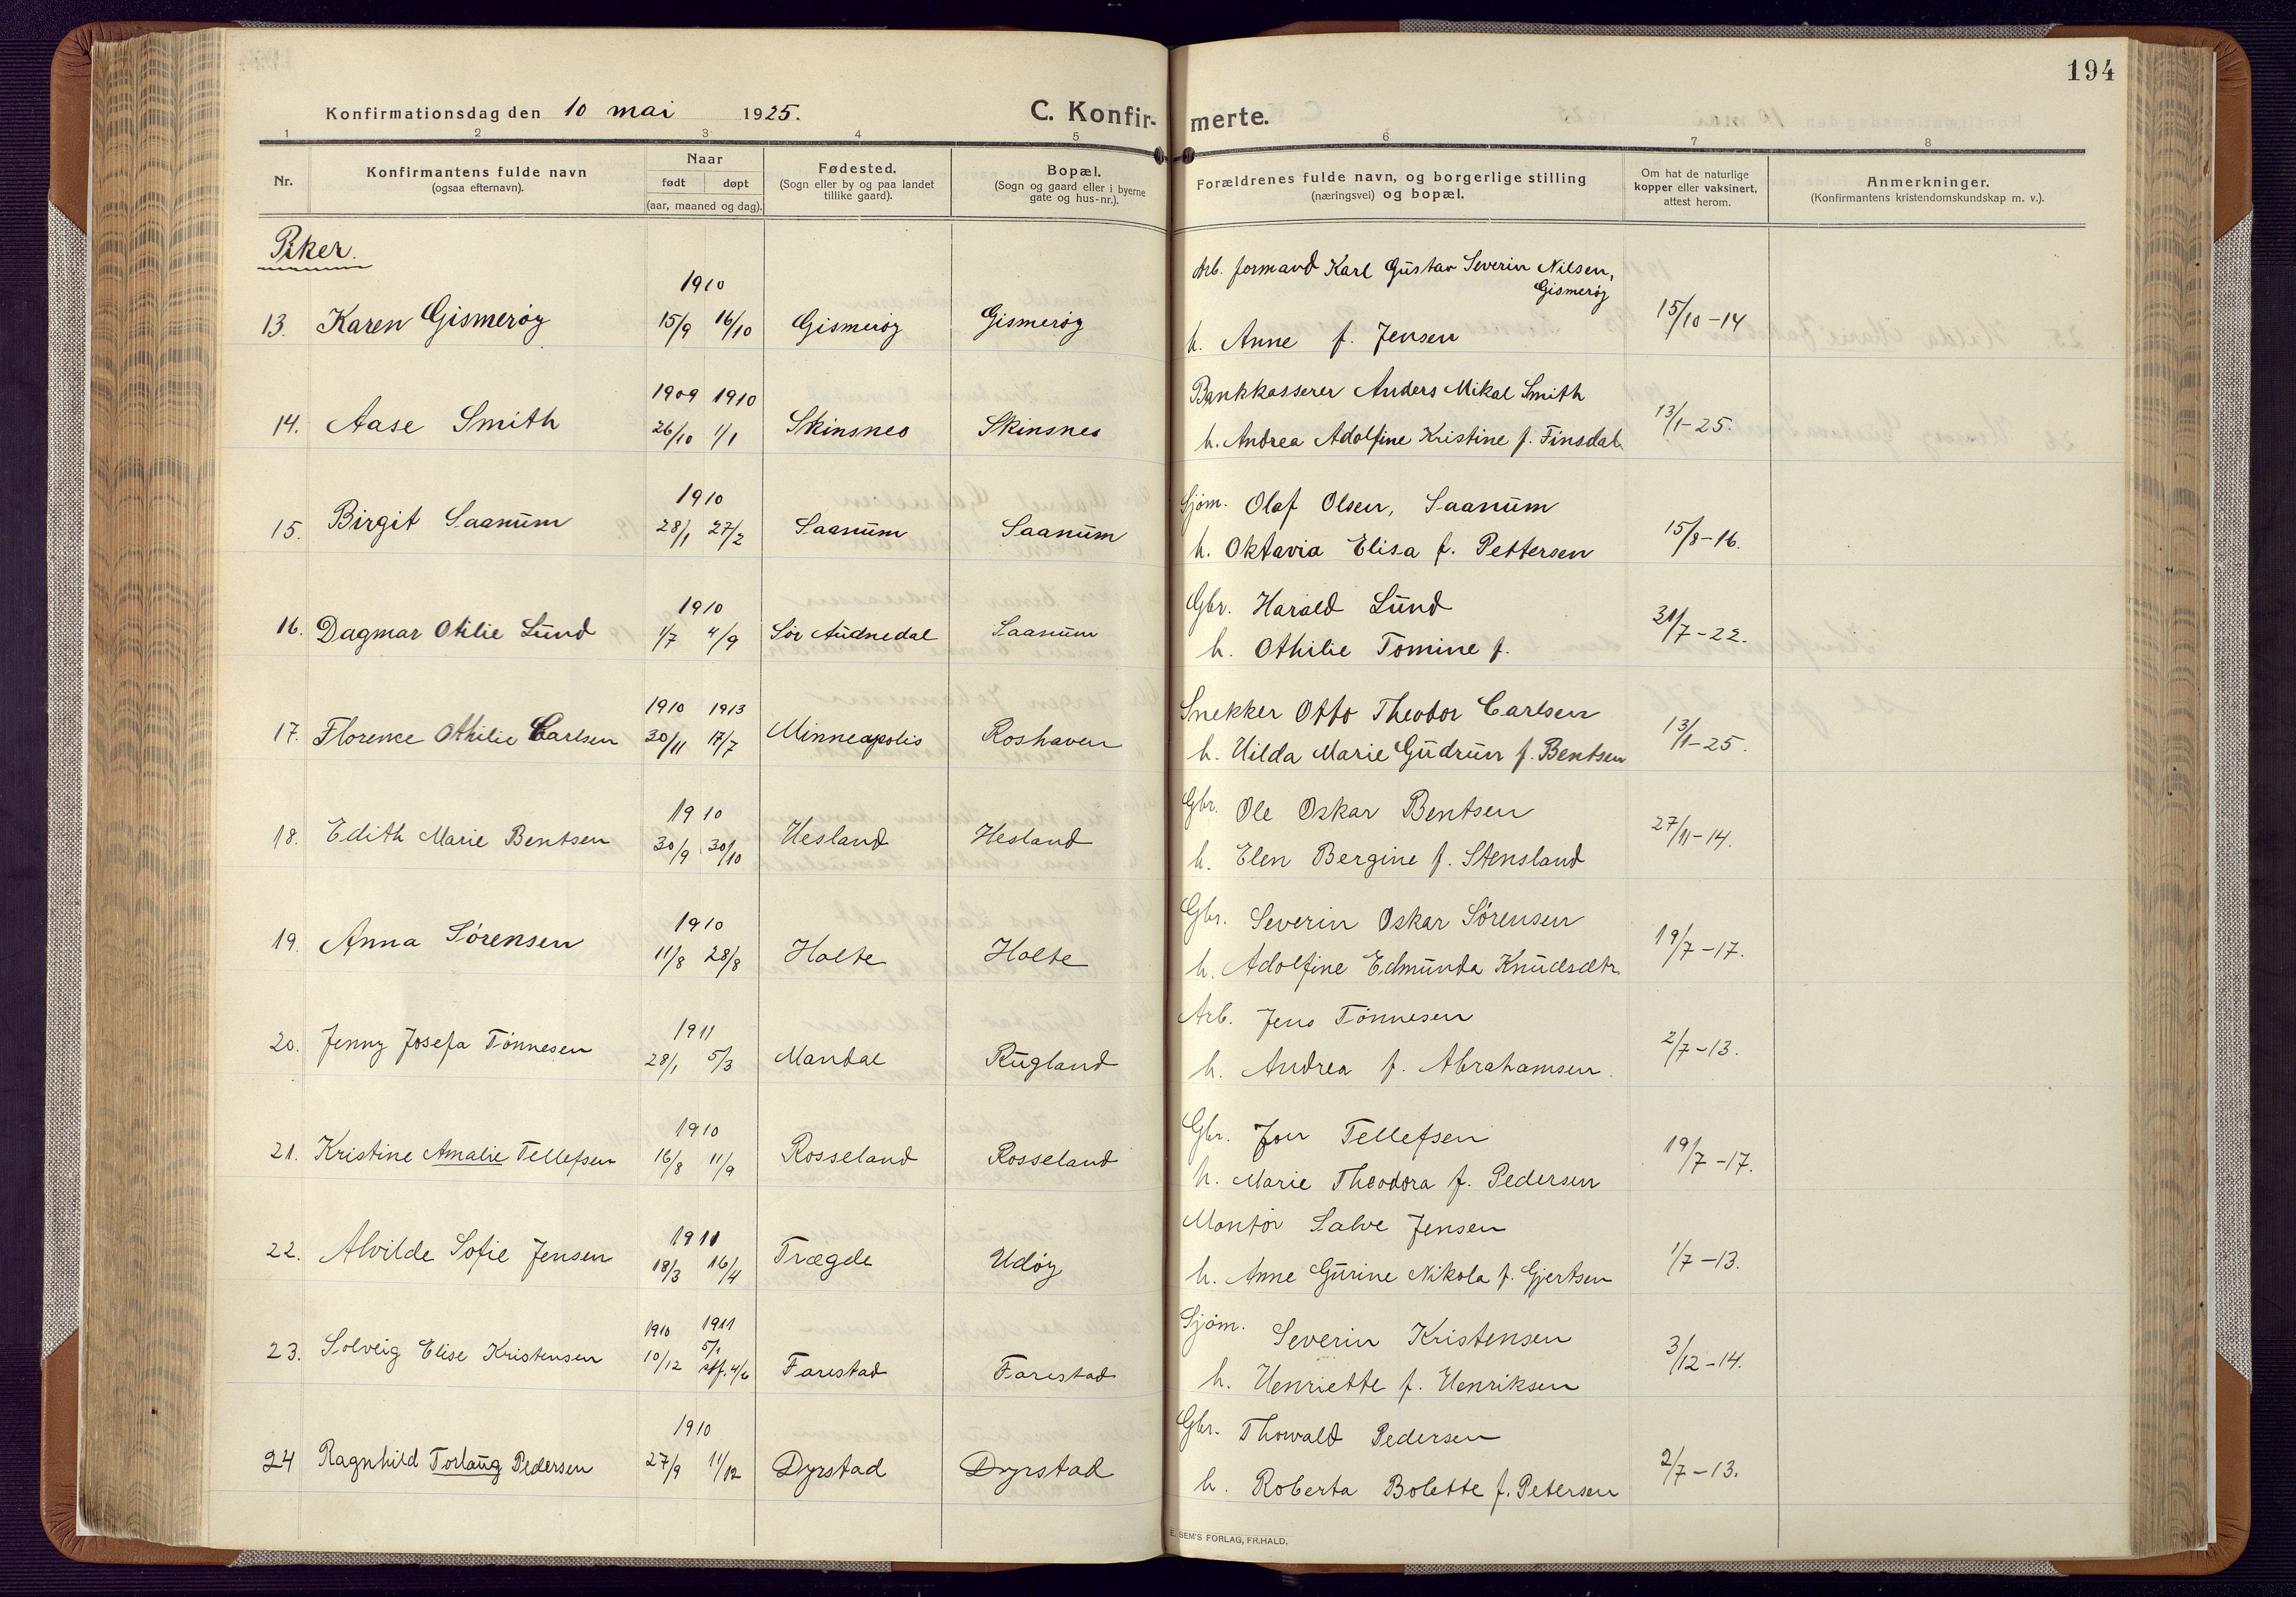 194
Konfirmationsdag den 10 mai 1925. C. Konfir- merte.
1 2 3 4 5 6 7 8
Nr.
Konfirmantens fulde navn
(ogsaa efternavn).
Naar
født døpt
(aar, maaned og dag).
Fødested.
(Sogn eller by og paa landet
tillike gaard).
Bopæl.
(Sogn og gaard eller i byerne
gate og hus-nr.).
Forældrenes fulde navn, og borgerlige stilling
(næringsvei) og bopæl.
Om hat de naturlige
kopper eller vaksinert,
attest herom.
Anmerkninger.
(Konfirmantens kristendomskundskap m. v.).
Piker.
Arb. formand Karl Gustav Severin Nilsen,
Gismerøy
1910
13. Karen Gismerøy 15/9 16/10 Gismerøy Gismerøy 15/10-14
h. Anne f. Jensen
1909 1910 Bankkasserer Anders Mikal Smith
14. Aase Smith 26/10 1/1 Skinsnes Skinsnes 13/1-25.
h. Andrea Adolfine Kristine f. Finsdal
1910 Sjøm. Olaf Olsen, Saanum
15. Birgit Saanum 28/1 27/2 Saanum Saanum 15/8-16.
h. Oktavia Elisa f. Pettersen
1910 Gbr. Harald Lund
16. Dagmar Otilie Lund 1/7 4/9 Sør Audnedal Saanum 31/7-22.
h. Othilie Tomine f.
1910 1913 Snekker Otto Theodor Carlsen
17. Florence Othilie Carlsen 30/11 17/7 Minneapolis Roshaven 13/1-25.
h. Hilda Marie Gudrun f. Bentsen
1910 Gbr. Ole Oskar Bentsen
18. Edith Marie Bentsen 30/9 30/10 Hesland Hesland 27/11-14.
h. Elen Bergine f. Stensland
1910 Gbr. Severin Oskar Sørensen
19. Anna Sørensen 11/8 28/8 Holte Holte 19/7-17.
h. Adolfine Edmunda Knudsdtr
1911 Arb. Jens Tønnesen
20. Jenny Josefa Tønnesen 28/1 5/3 Mandal Rugland 2/7-13.
h. Andrea f. Abrahamsen.
1910 Gbr. Jon Tellefsen
21. Kristine Amalie Tellefsen 16/8 11/9 Rosseland Rosseland 19/7-17.
h. Marie Theodora f. Pedersen
1911 Montør Salve Jensen
22. Alvilde Sofie Jensen 18/3 16/4 Trægde Udøy 1/7-13.
h. Anne Gurine Nikola f. Gjertsen
1910 1911 Sjøm. Severin Kristensen
23. Solveig Elise Kristensen 10/12 5/1 stf. 4/6 Farestad Farestad 3/12-14.
h. Henriette f. Henriksen
1910 Gbr. Thorvald Pedersen
24 Ragnhild Torlaug Pedersen 27/9 11/12 Dyrstad Dyrstad 2/7-13.
h. Roberta Bolette f. Petersen
E. SEM'S FORLAG, FR.HALD.